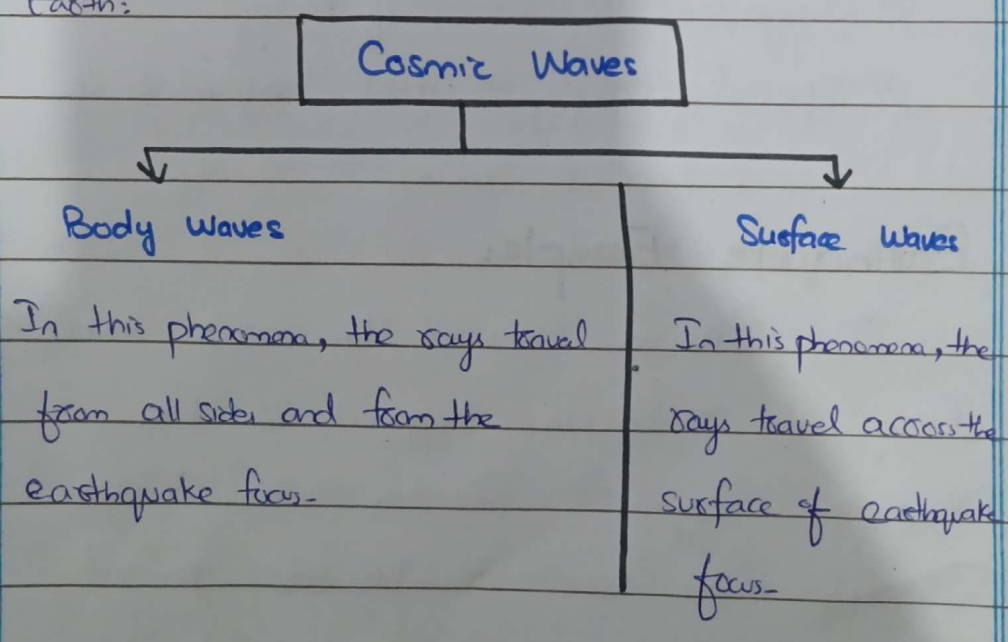 Earth:
Cosmic Waves
Body Waves
In this phenomena, the rays travel
from all sides and from the
earthquake focus-
Surface Waves
In this phenomena, the
rays travel across the
surface of earthquake
focus-